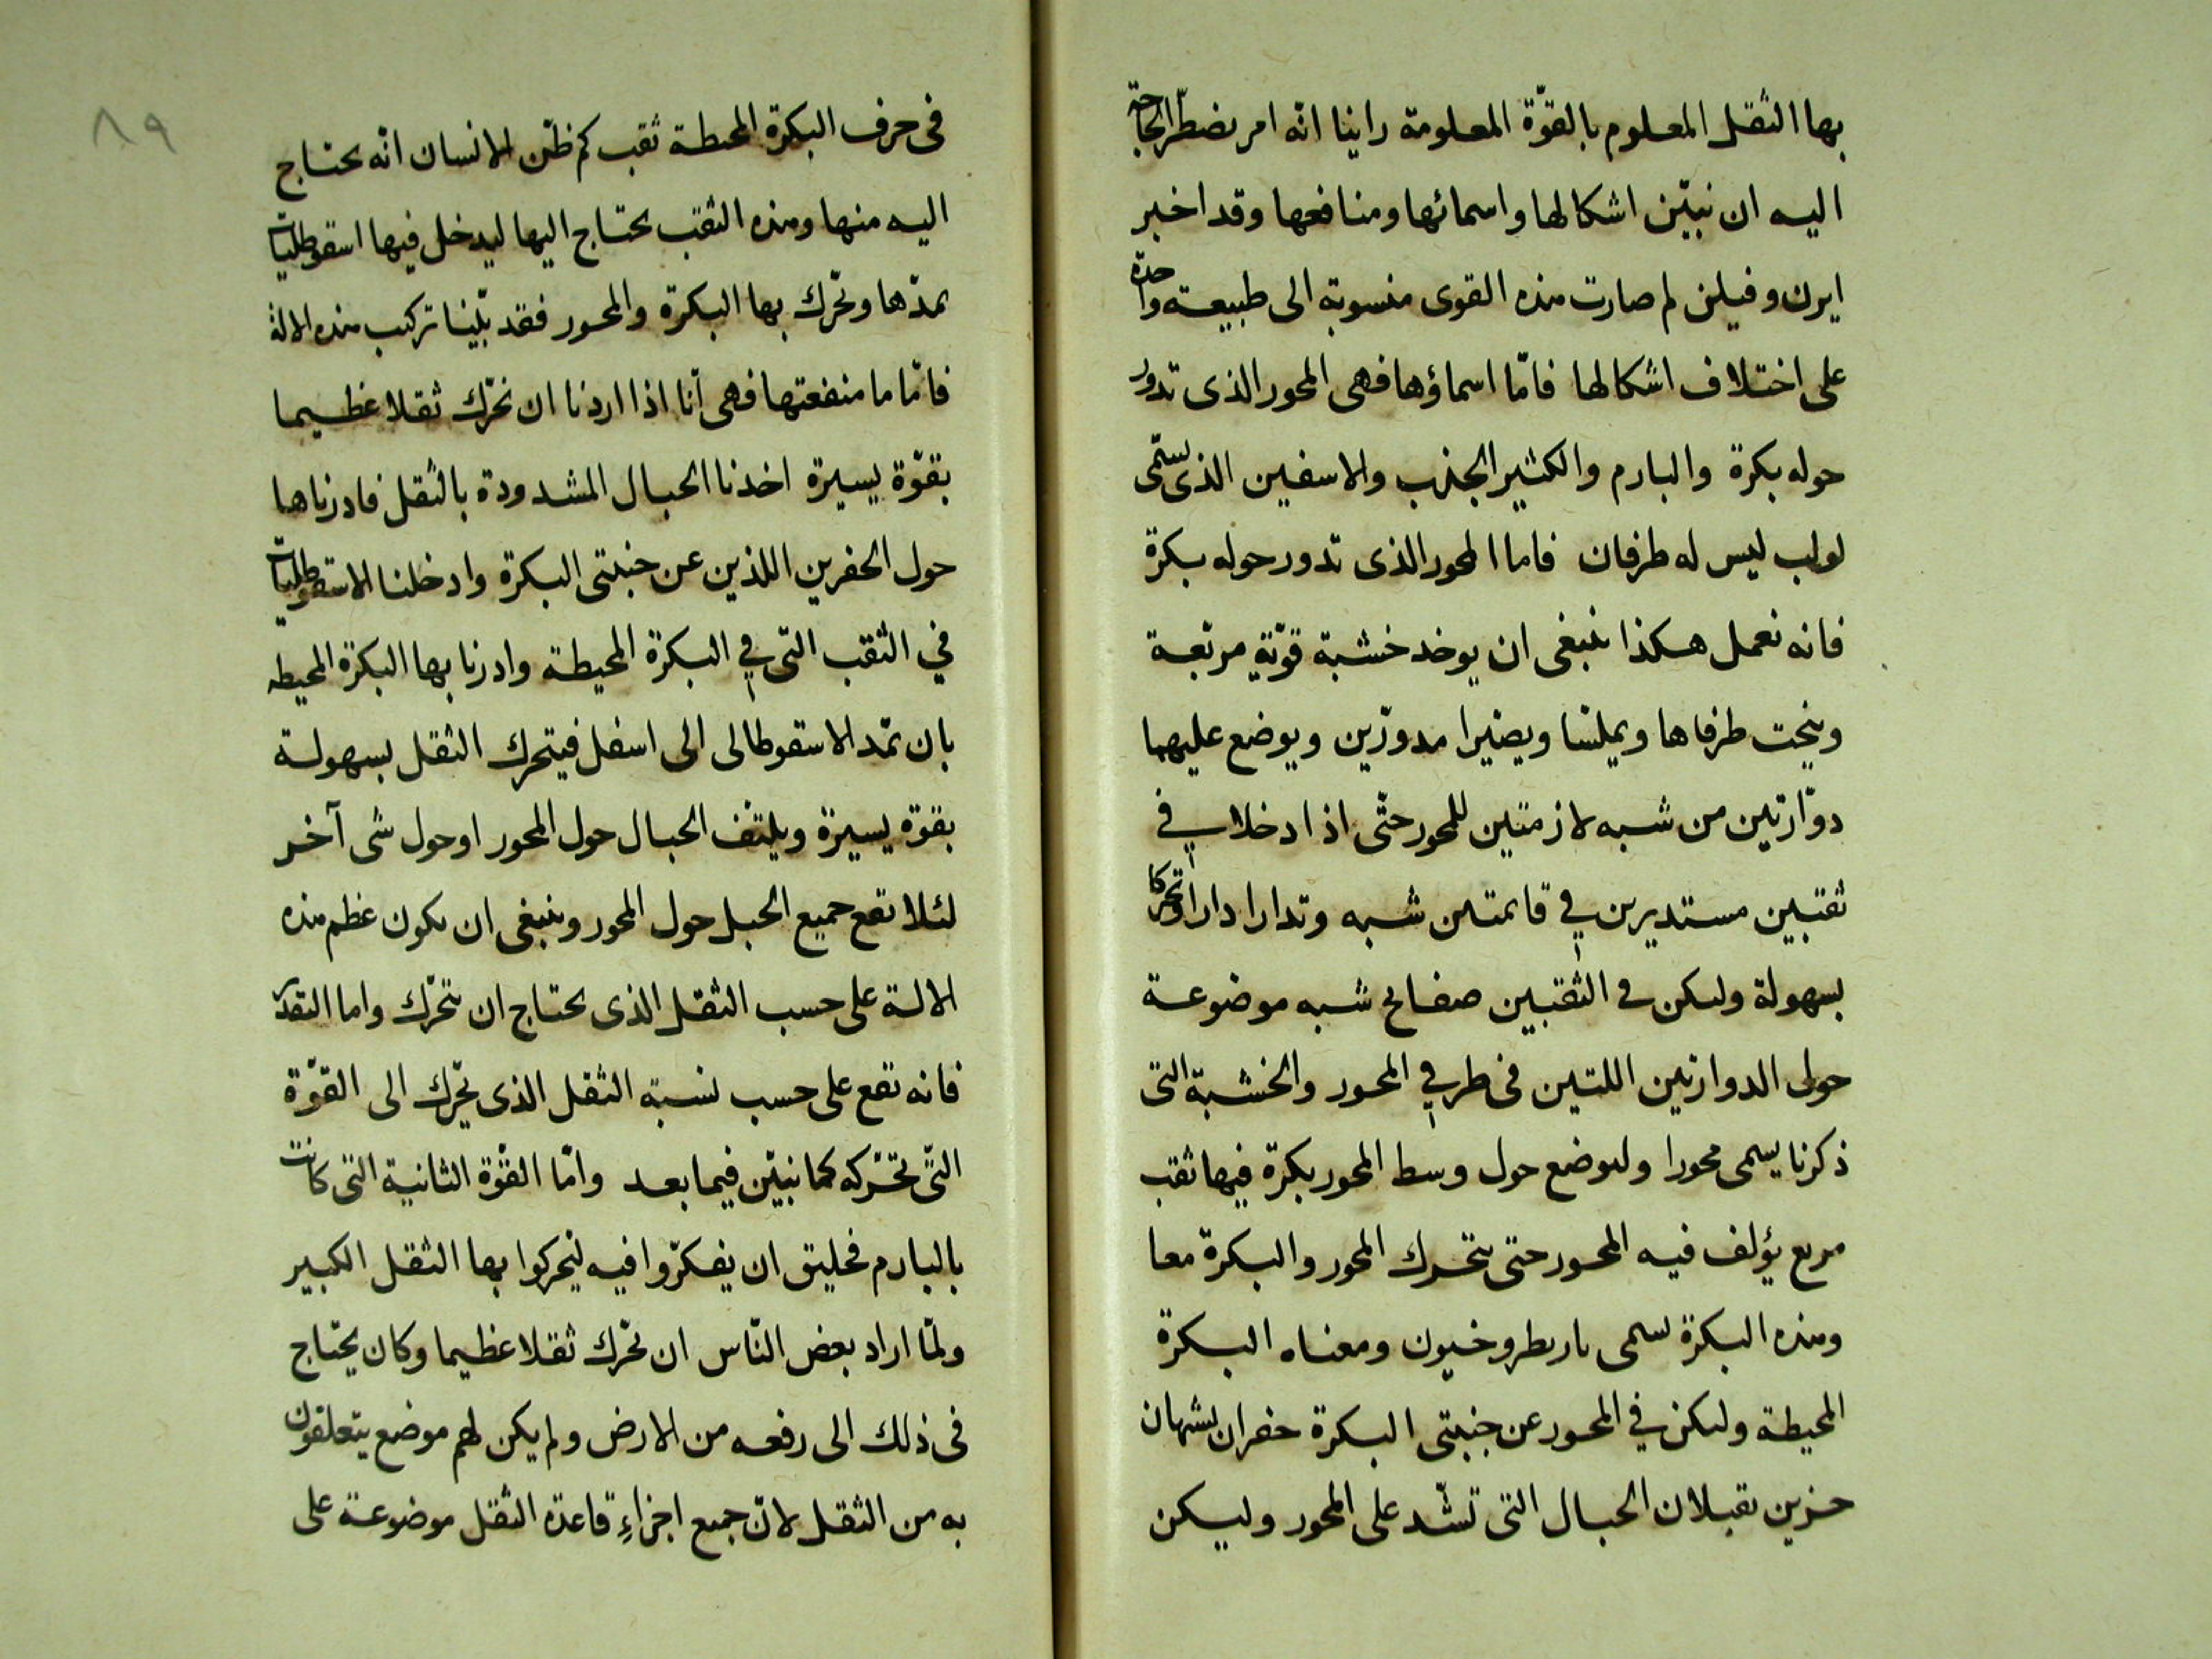 بها الثقل المعلوم بالقوّة المعلومة راينا انّه امر تضطرّ الحاجة
اليه ان نبيّن اشكالها واسمائها ومنافعها وقد اخبر
ايرن وفيلن لم صارت هذه القوى منسوبة الى طبيعة واحدة
على اختلاف اشكالها فامّا اسماؤها فهى المحور الذى تدور
حوله بكرة والبارم والكثير الجذب والاسفين الذى يسمّى
لولب ليس له طرفان فاما المحور الذى تدور حوله بكرة
فانه نعمل هكذا ينبغى ان يوخد خشبة قويّة مربّعة
وينحت طرفاها ويملّسا ويصيّرا مدوّرين ويوضع عليهما
دوّارتين من شبه لازمتين للمحور حتّى اذا ادخلا في
ثقبين مستديرين في قائمتين شبه وتدارا دارا وتحركا
بسهولة وليكن فى الثقبين صفائح شبه موضوعة
حول الدوارتين اللتين فى طرفي المحور والخشبة التى
ذكرنا يسمى محورا وليوضع حول وسط المحور بكرة فيها ثقب
مربع يؤلف فيه المحور حتى يتحرك المحور والبكرة معا
وهذه البكرة تسمى باريطروخيون ومعناه البكرة
المحيطة وليكن في المحور عن جنبتى البكرة حفران يشبهان
حزين تقبلان الحبال التى تشّد على المحور وليكن
٨٩
فى حرف البكرة المحيطة ثقب كم ظن الانسان انّه يحتاج
اليه منها وهذه الثقب يحتاج اليها ليدخل فيها اسقوطليات
يمدّها وتحرّك بها البكرة والمحور فقد بّينا تركيب هذه الالة
فامّا ما منفعتها فهى انّا اذا اردنا ان نحرّك ثقلا عظيما
بقوّة يسيرة اخذنا الحبال المشدودة بالثقل فادرناها
حول الحفرين اللذين عن جنبتى البكرة وادخلنا الاسقوطليات
في الثقب التى في البكرة المحيطة وادرنا بها البكرة المحيطه
بان تمّد الاسقوطالى الى اسفل فيتحرك الثقل بسهولة
بقوّة يسيرة ويلتف الحبال حول المحور او حول شى آخر
لئلا تقع جميع الحبل حول المحور وينبغى ان يكون عظم هذه
الالة على حسب الثقل الذى يحتاج ان تحرّك واما التقدير
فانه تقع على حسب نسبة الثقل الذى تحّرك الى القوّة
التّى تحّركه كما نبيّن فيما بعد وامّا القوّة الثانية التى كانت
بالبارم فخليق ان يفكرّوا فيه ليحركوا بها الثقل الكبير
ولمّا اراد بعض النّاس ان تحّرك ثقلا عظيما وكان يحتاج
فى ذلك الى رفعه من الارض ولم يكن لهم موضع يتعلقون
به من الثقل لانّ جميع اجزاءِ قاعدة الثقل موضوعة على